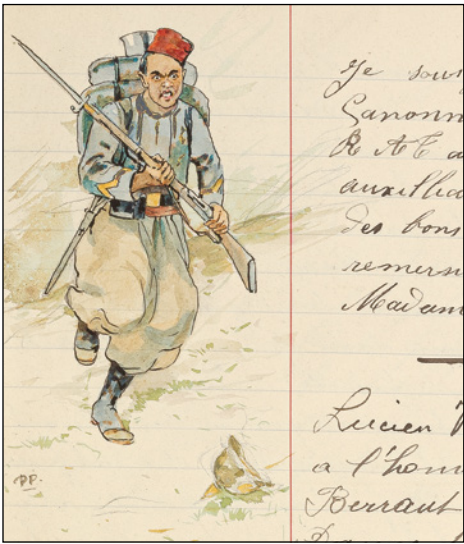 Je sous
Canonn
R A C a
auxillia
des bons
remers
Madam
Lucien
a l'hom
Berraut
PP.